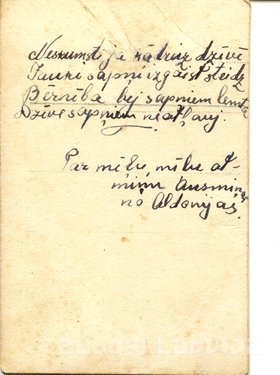 Neskumsti ja kādreiz dzīvē
Jauki sapņi izgaist steidz
Bērnība bej sapņiem lemta
Dzīve sapņiem neatļauj.
Par mīļu, mīļu at-
miņu Ausmiņai
no Aldonijas.